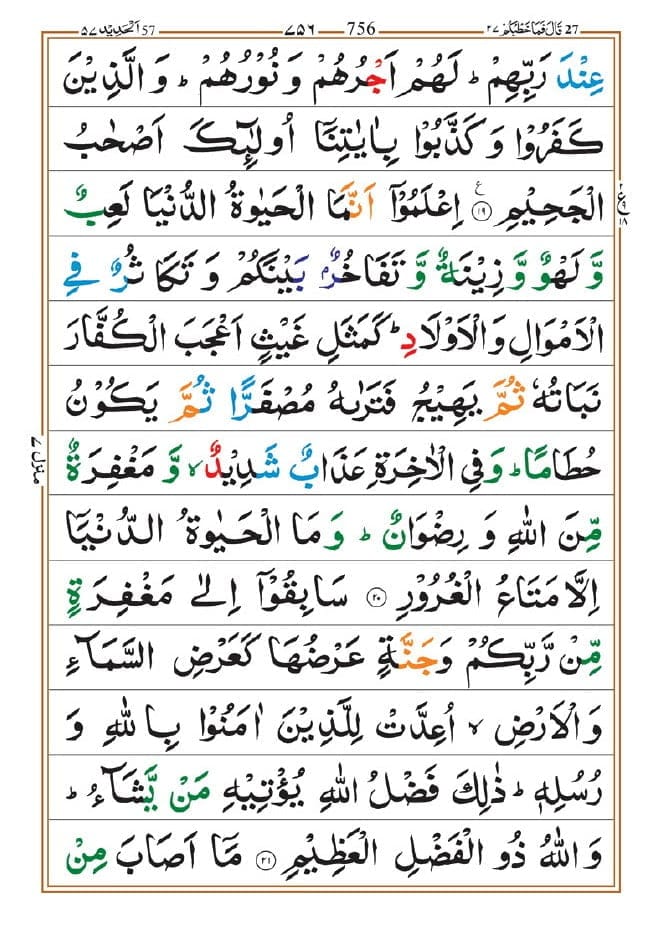 27 قَالَ فَمَا خَطْبُكُمْ ٢٧ 756 ٧٥٦ 57 اَلْحَدِيْد ٥٧
عِنْدَ رَبِّهِمْ ؕ لَهُمْ اَجْرُهُمْ وَ نُوْرُهُمْ ؕ وَ الَّذِيْنَ
كَفَرُوْا وَ كَذَّبُوْا بِاٰيٰتِنَاۤ اُولٰٓئِكَ اَصْحٰبُ
الْجَحِيْمِ ۝١٩ ع اِعْلَمُوْۤا اَنَّمَا الْحَيٰوةُ الدُّنْيَا لَعِبٌ
وَّ لَهْوٌ وَّ زِيْنَةٌ وَّ تَفَاخُرٌۢ بَيْنَكُمْ وَ تَكَاثُرٌ فِي
الْاَمْوَالِ وَ الْاَوْلَادِ ؕ كَمَثَلِ غَيْثٍ اَعْجَبَ الْكُفَّارَ
نَبَاتُهٗ ثُمَّ يَهِيْجُ فَتَرٰىهُ مُصْفَرًّا ثُمَّ يَكُوْنُ
حُطَامًا ؕ وَ فِي الْاٰخِرَةِ عَذَابٌ شَدِيْدٌ ۙ وَّ مَغْفِرَةٌ
مِّنَ اللّٰهِ وَ رِضْوَانٌ ؕ وَ مَا الْحَيٰوةُ الدُّنْيَاۤ
اِلَّا مَتَاعُ الْغُرُوْرِ ۝٢٠ سَابِقُوْۤا اِلٰى مَغْفِرَةٍ
مِّنْ رَّبِّكُمْ وَ جَنَّةٍ عَرْضُهَا كَعَرْضِ السَّمَآءِ
وَ الْاَرْضِ ۙ اُعِدَّتْ لِلَّذِيْنَ اٰمَنُوْا بِاللّٰهِ وَ
رُسُلِهٖ ؕ ذٰلِكَ فَضْلُ اللّٰهِ يُؤْتِيْهِ مَنْ يَّشَآءُ ؕ
وَ اللّٰهُ ذُو الْفَضْلِ الْعَظِيْمِ ۝٢١ مَاۤ اَصَابَ مِنْ
منزل ٧